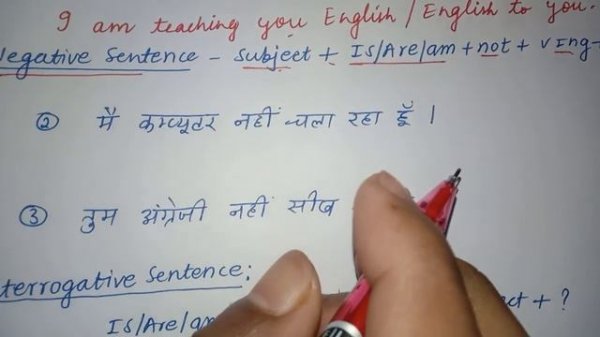 I am teaching you English / English to you.
Negative Sentence - Subject + Is/Are/am + not + Ving +
② मै कम्प्यूटर नहीं चला रहा हूँ ।
③ तुम अंग्रेजी नहीं सीख
terrogative Sentence:
Is/Are/am ct + ?